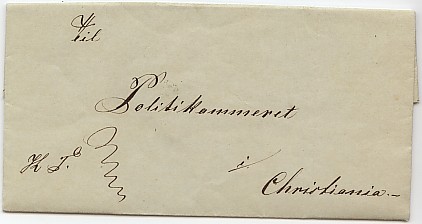 Til
Politikammeret
K. T.e
i
Christiania.-